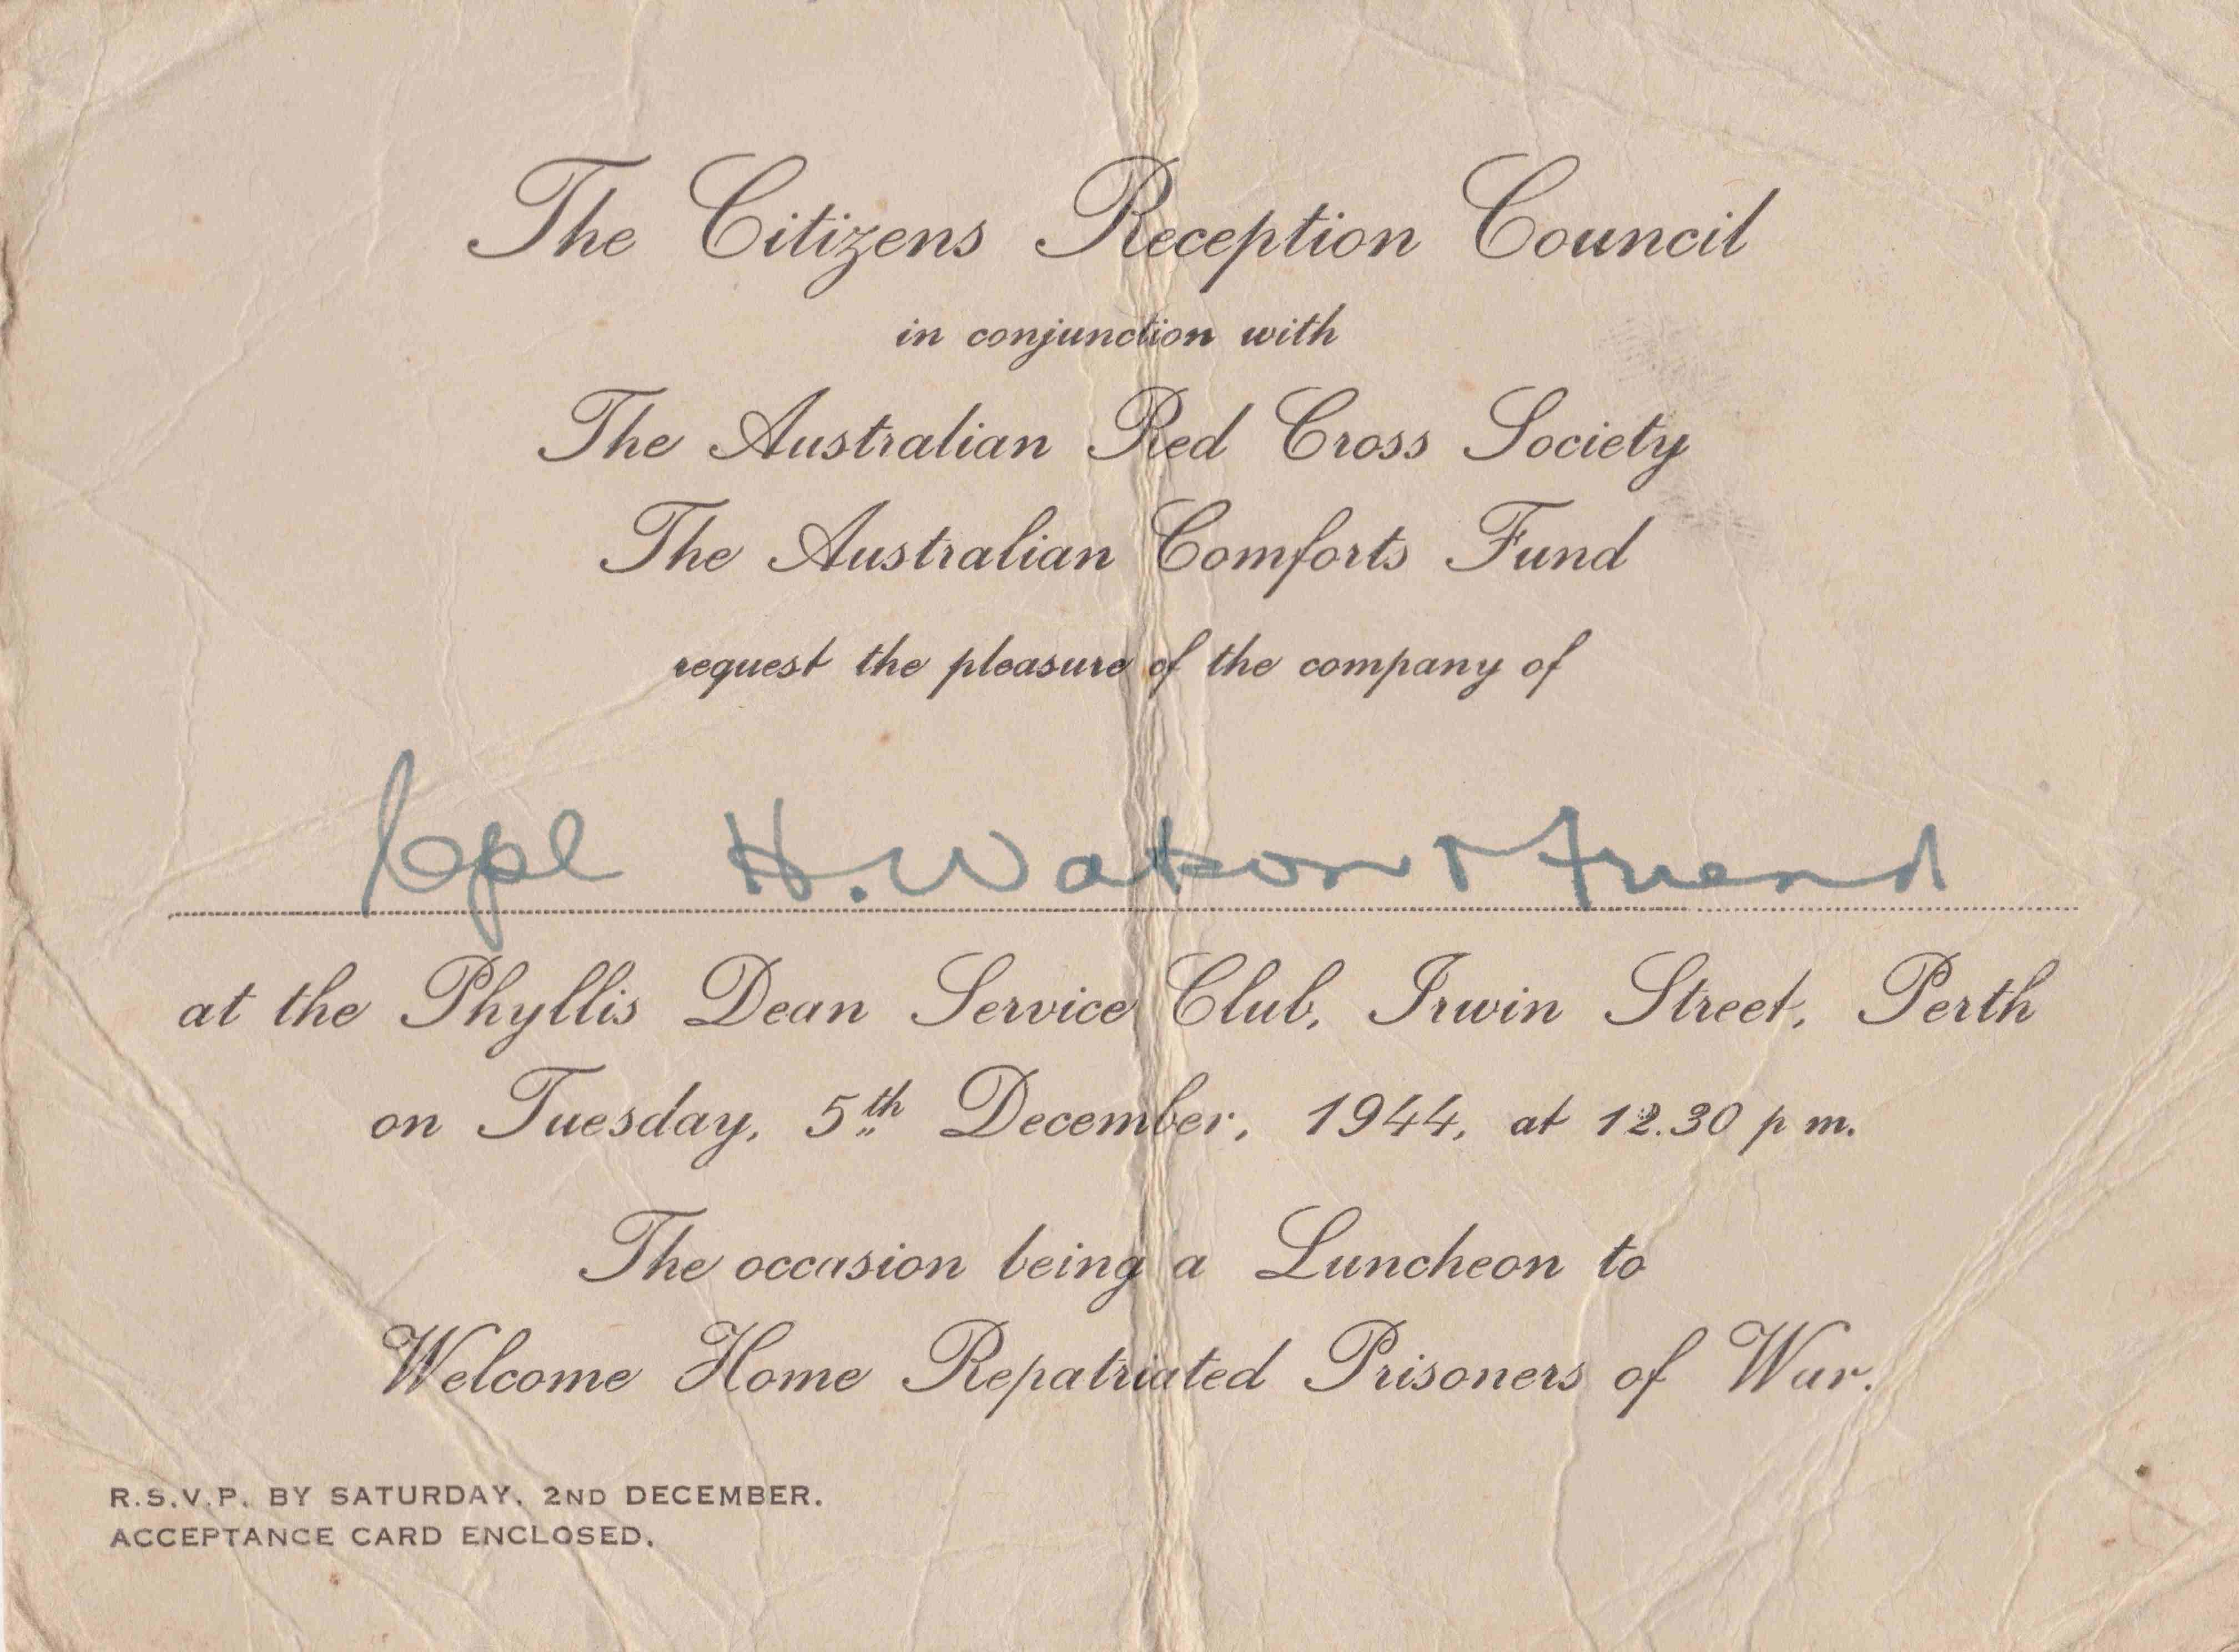 The Citizens Reception Council
in conjunction with
The Australian Red Cross Society
The Australian Comforts Fund
request the pleasure of the company of
Cpl H. Watson & Friend
at the Phyllis Dean Service Club, Irwin Street, Perth
on Tuesday, 5th December, 1944, at 12.30 p m.
The occasion being a Luncheon to
Welcome Home Repatriated Prisoners of War.
R.S.V.P. BY SATURDAY, 2ND DECEMBER.
ACCEPTANCE CARD ENCLOSED.